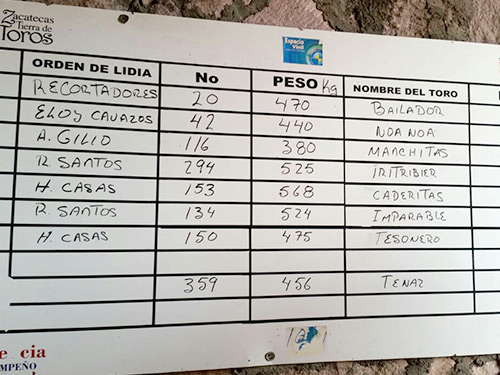 Zacatecas
Tierra de
Toros
Espacio
Vinil
ORDEN DE LIDIA No PESO Kg NOMBRE DEL TORO
RECORTADORES 20 470 BAILADOR
ELOY CAVAZOS 42 440 NOA NOA
A. GILIO 116 380 MANCHITAS
R. SANTOS 294 525 IRITRIBIER
H. CASAS 153 568 CADERITAS
R. SANTOS 134 524 IMPARABLE
H. CASAS 150 475 TESONERO
359 456 TENAZ
e cia
EMPEÑO